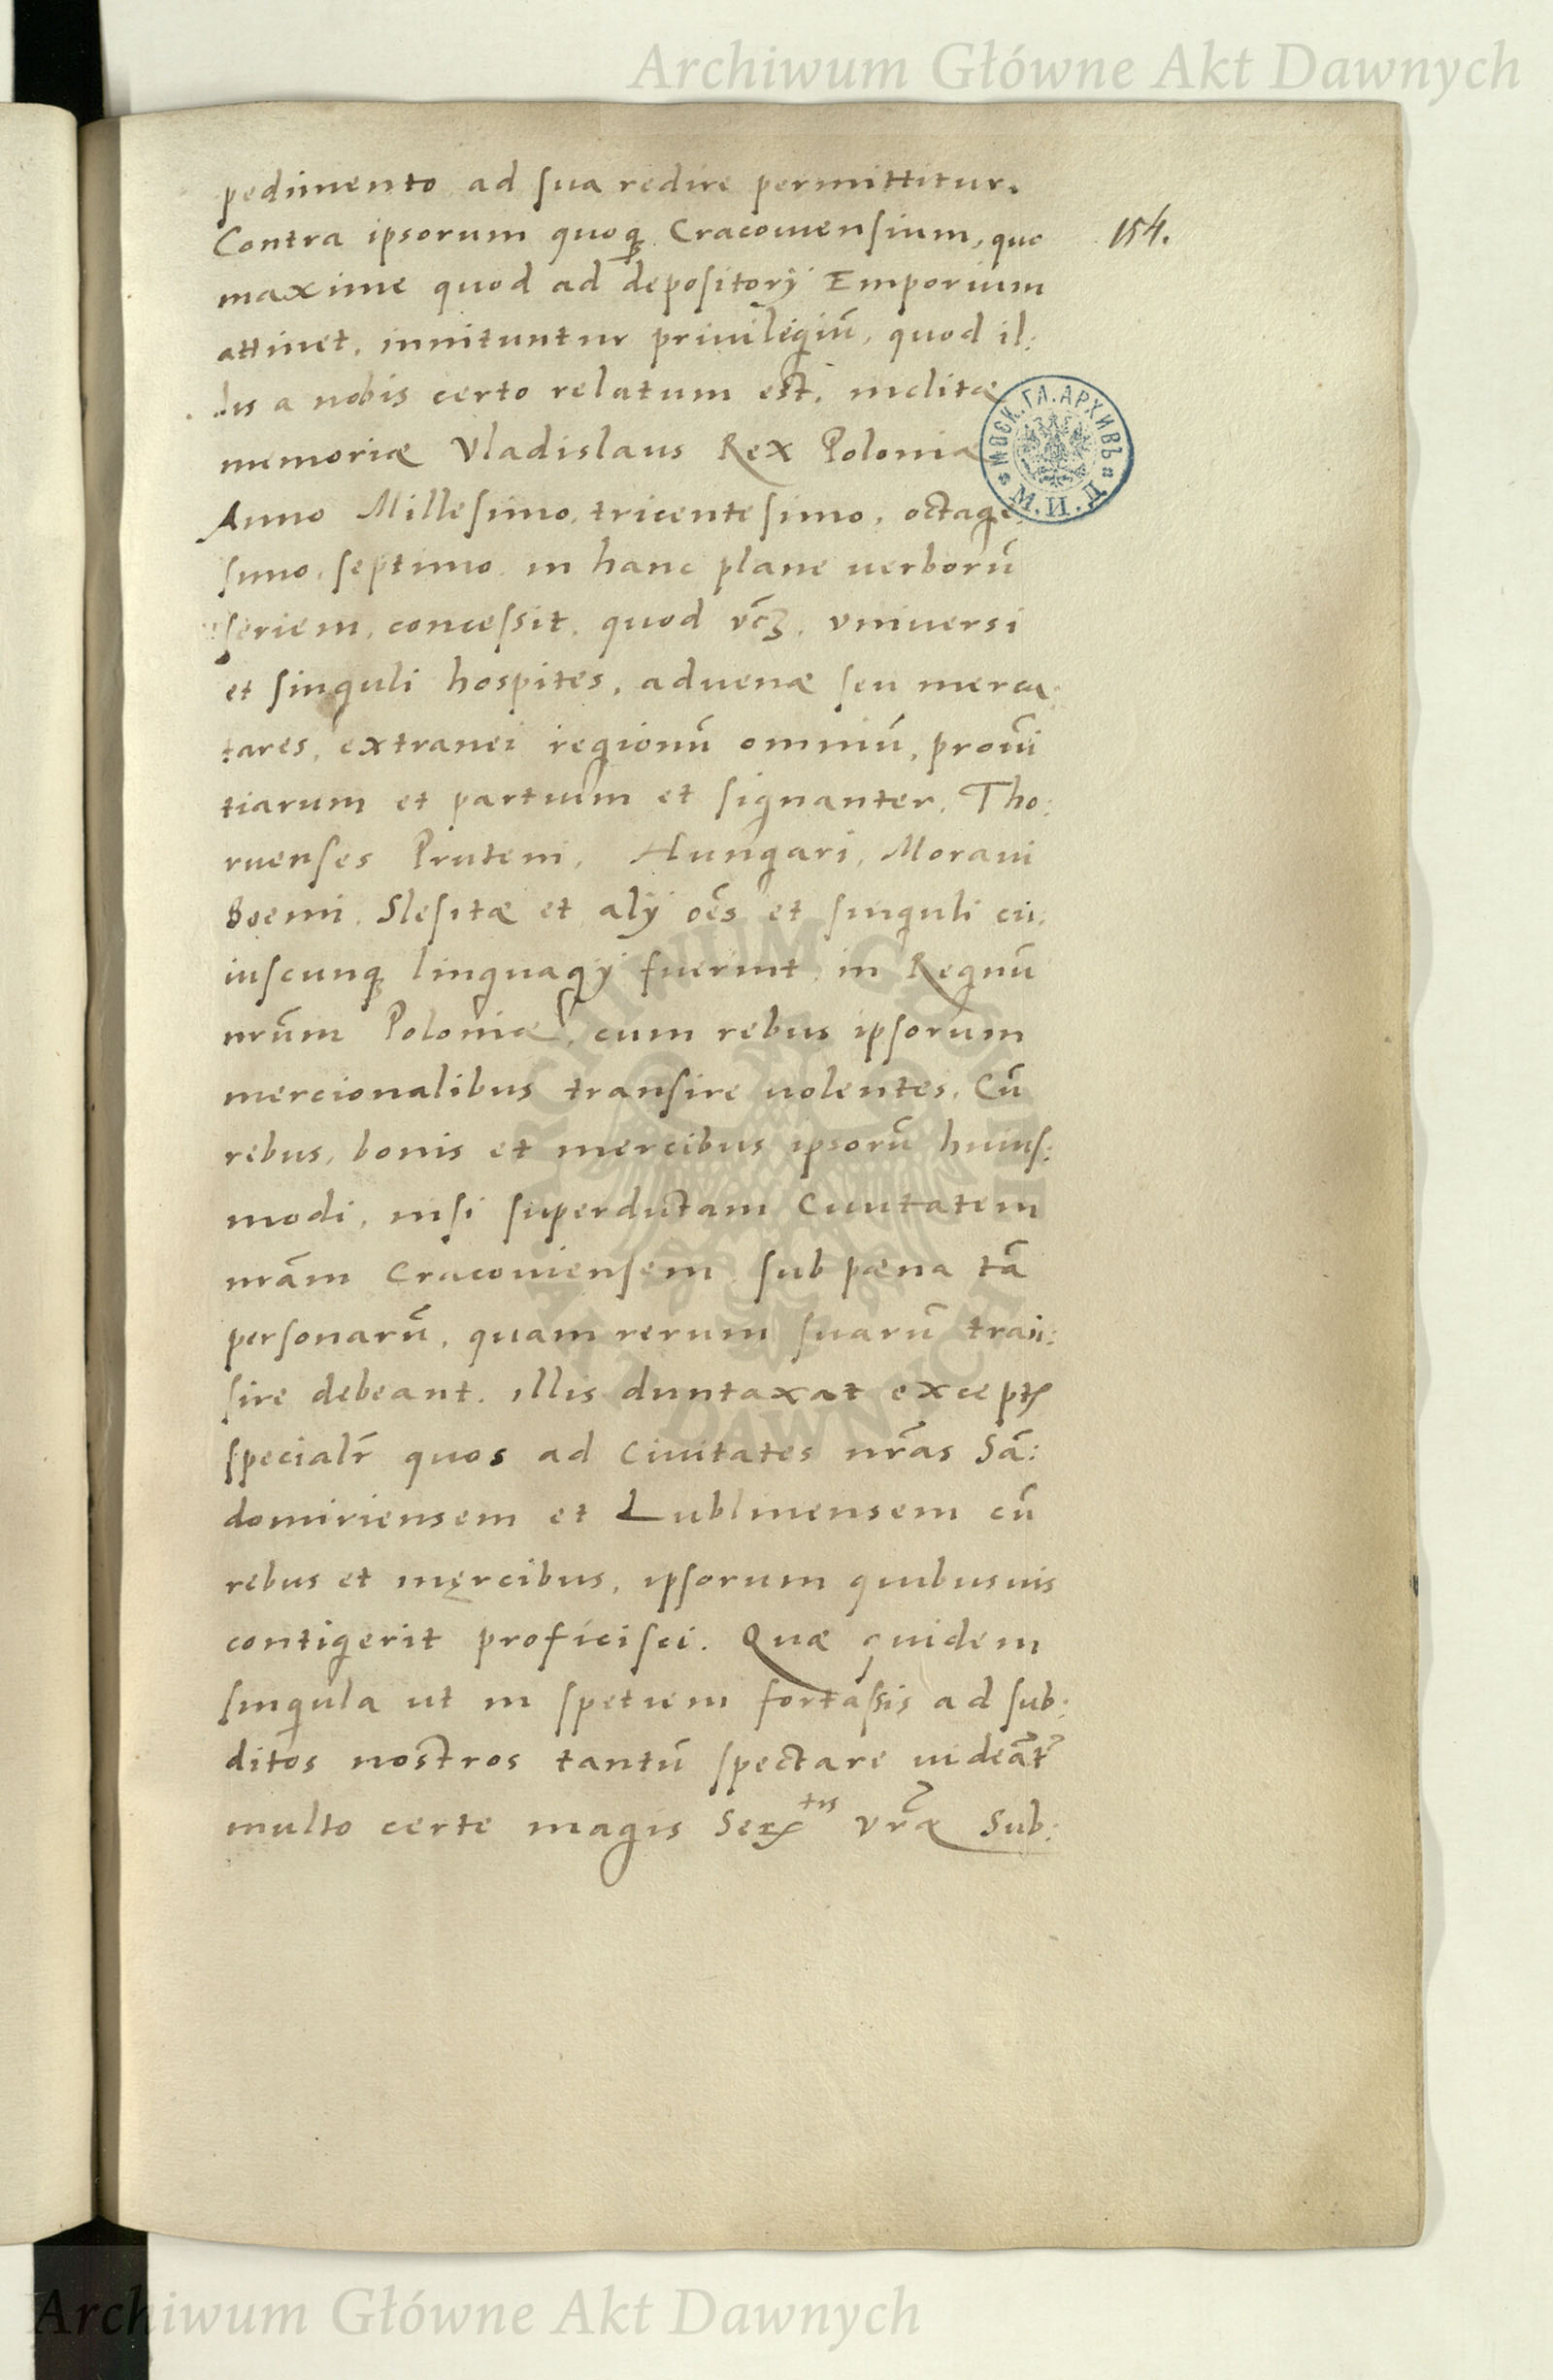 Archiwum Główne Akt Dawnych
pedimento ad sua redire permittitur.
Contra ipsorum quoq; Cracouiensium, quo
154.
maxime quod ad depositorÿ Emporium
attinet, innituntur priuilegiū, quod il:
lis a nobis certo relatum est, inclitæ
memoriæ Vladislaus Rex Poloniæ
Anno Millesimo, tricentesimo, octage
simo, septimo, in hanc plane uerborū
seriem, concessit, quod vcȝ, vniuersi
et singuli hospites, aduenæ seu merca:
tores, extranei regionū omniū, proui
tiarum et partium et signanter, Tho:
runenses Pruteni, Hungari, Moraui
Boemi, Slesitæ et alÿ oēs et singuli cu:
iuscunq; linguagÿ fuerint, in Regnū
nrūm Poloniæ, cum rebus ipsorum
mercionalibus transire uolentes, Cū
rebus, bonis et mercibus ipsorū huius:
modi, nisi superdictam Ciuitatem
nrām Cracouiensem, sub pæna tā
personarū, quam rerum suarū tran:
sire debeant, illis duntaxat except
specialr quos ad Ciuitates nrās Sā:
domiriensem et Lublinensem cū
rebus et mercibus, ipsorum quibusuis
contigerit proficisci. Quæ quidem
singula ut in spetiem fortassis ad sub:
ditos nostros tantū spectare uideāt
multo certe magis Ser tis vræ Sub:
МОСК. ГЛ. АРХИВЪ
М.И.Д.
ARCHIWUM GŁÓWNE
AKT DAWNYCH
Archiwum Główne Akt Dawnych